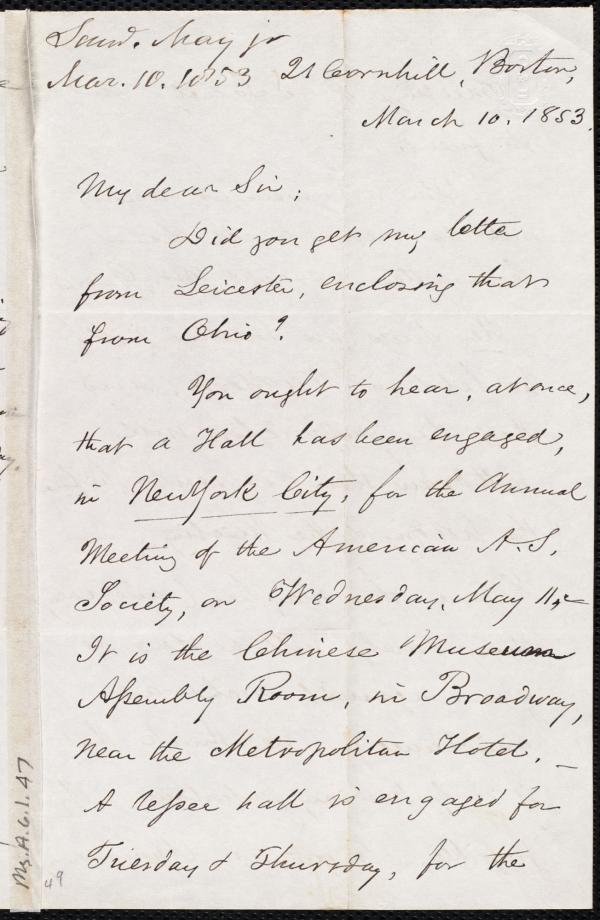 Saml. May jr
Mar. 10. 1853 21 Cornhill, Boston,
March 10. 1853.
My dear Sir;
Did you get my letter
from Leicester, enclosing that
from Ohio?
You ought to hear, at once,
that a Hall has been engaged,
in New York City, for the Annual
Meeting of the American A. S.
Society, on Wednesday, May 11,
It is the Chinese Museum
Assembly Room, in Broadway,
near the Metropolitan Hotel. –
A lesser hall is engaged for
Tuesday & Thursday, for the
Ms. A. 6. 1. 47
49